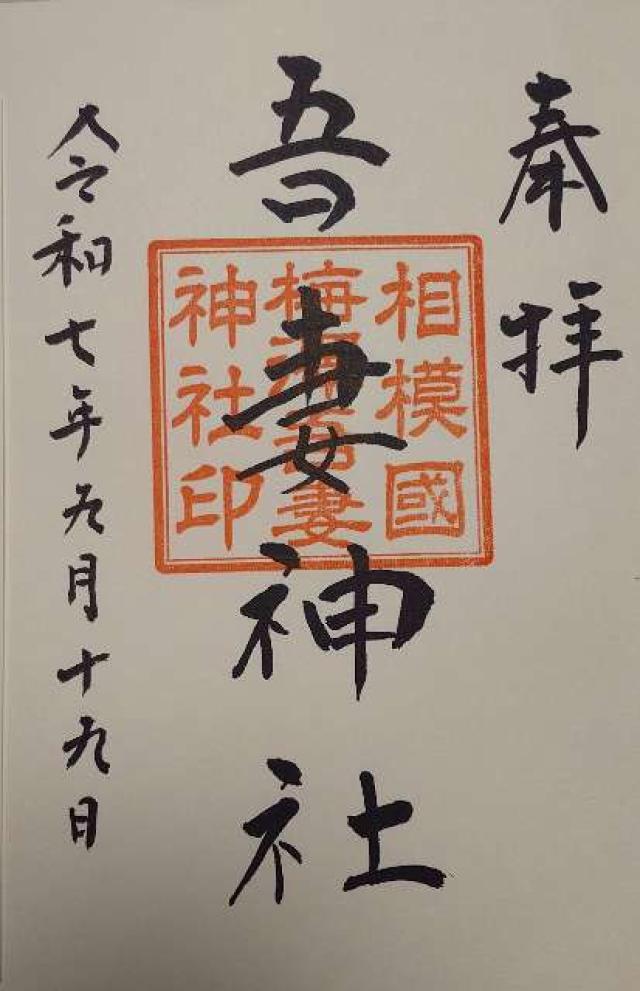 奉拝
吾妻神社
相模國
梅沢吾妻
神社印
令和七年九月十九日